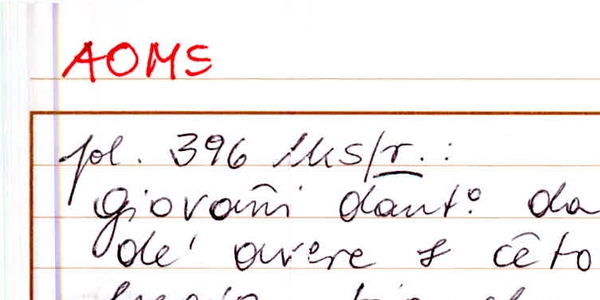 AOMS
fol. 396 1ks/r. :
giovañi dant.º da
de' avere & cêto